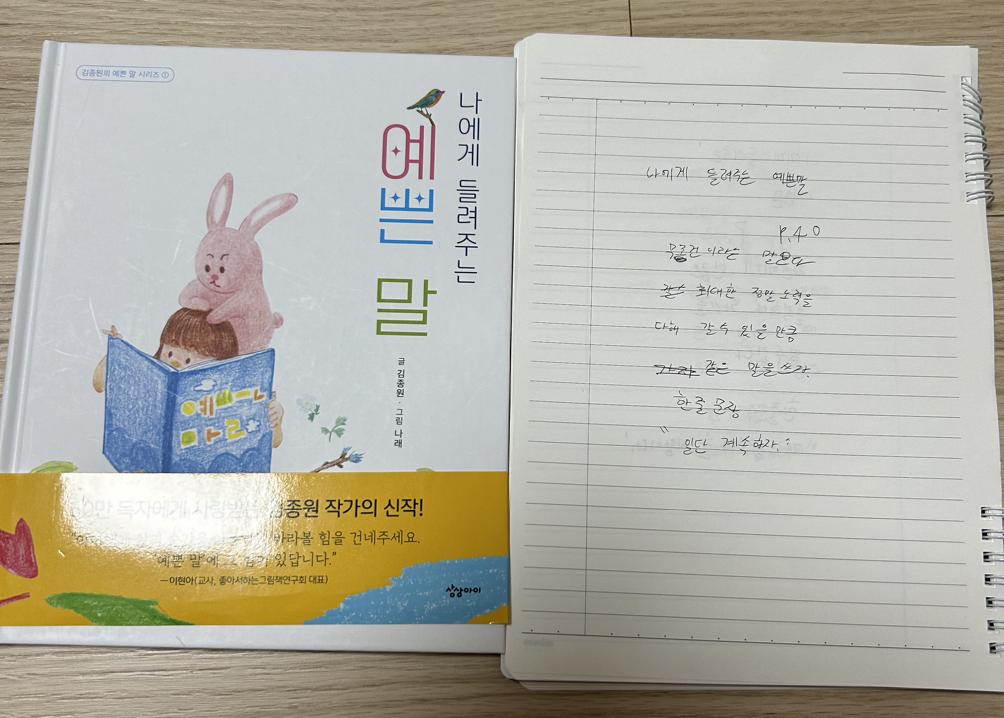 김종원의 예쁜 말 시리즈 ①
나에게 들려주는
예쁜 말
글 김종원 · 그림 나래
예쁜
말
만 독자에게 사랑받는 김종원 작가의 신작!
바라볼 힘을 건네주세요.
예쁜 말에 그 힘이 있답니다.”
—이현아(교사, 좋아서하는그림책연구회 대표)
상상아이
나에게 들려주는 예쁜말
P.40
무조건 이라는 말보다
최대한 정말 노력을
다해 갈 수 있을 만큼
같은 말을 쓰자.
한줄 문장
“일단 계속하자.”